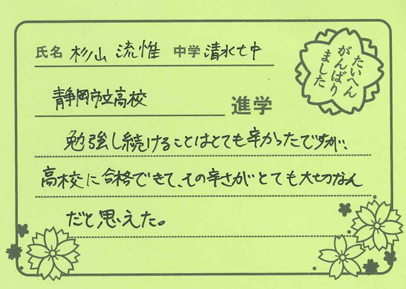 氏名 杉山 流惟 中学 清水七中
たいへん
がんばり
ました
静岡市立高校 進学
勉強し続けることはとても辛かったですが、
高校に合格できて、その辛さがとても大切なん
だと思えた。